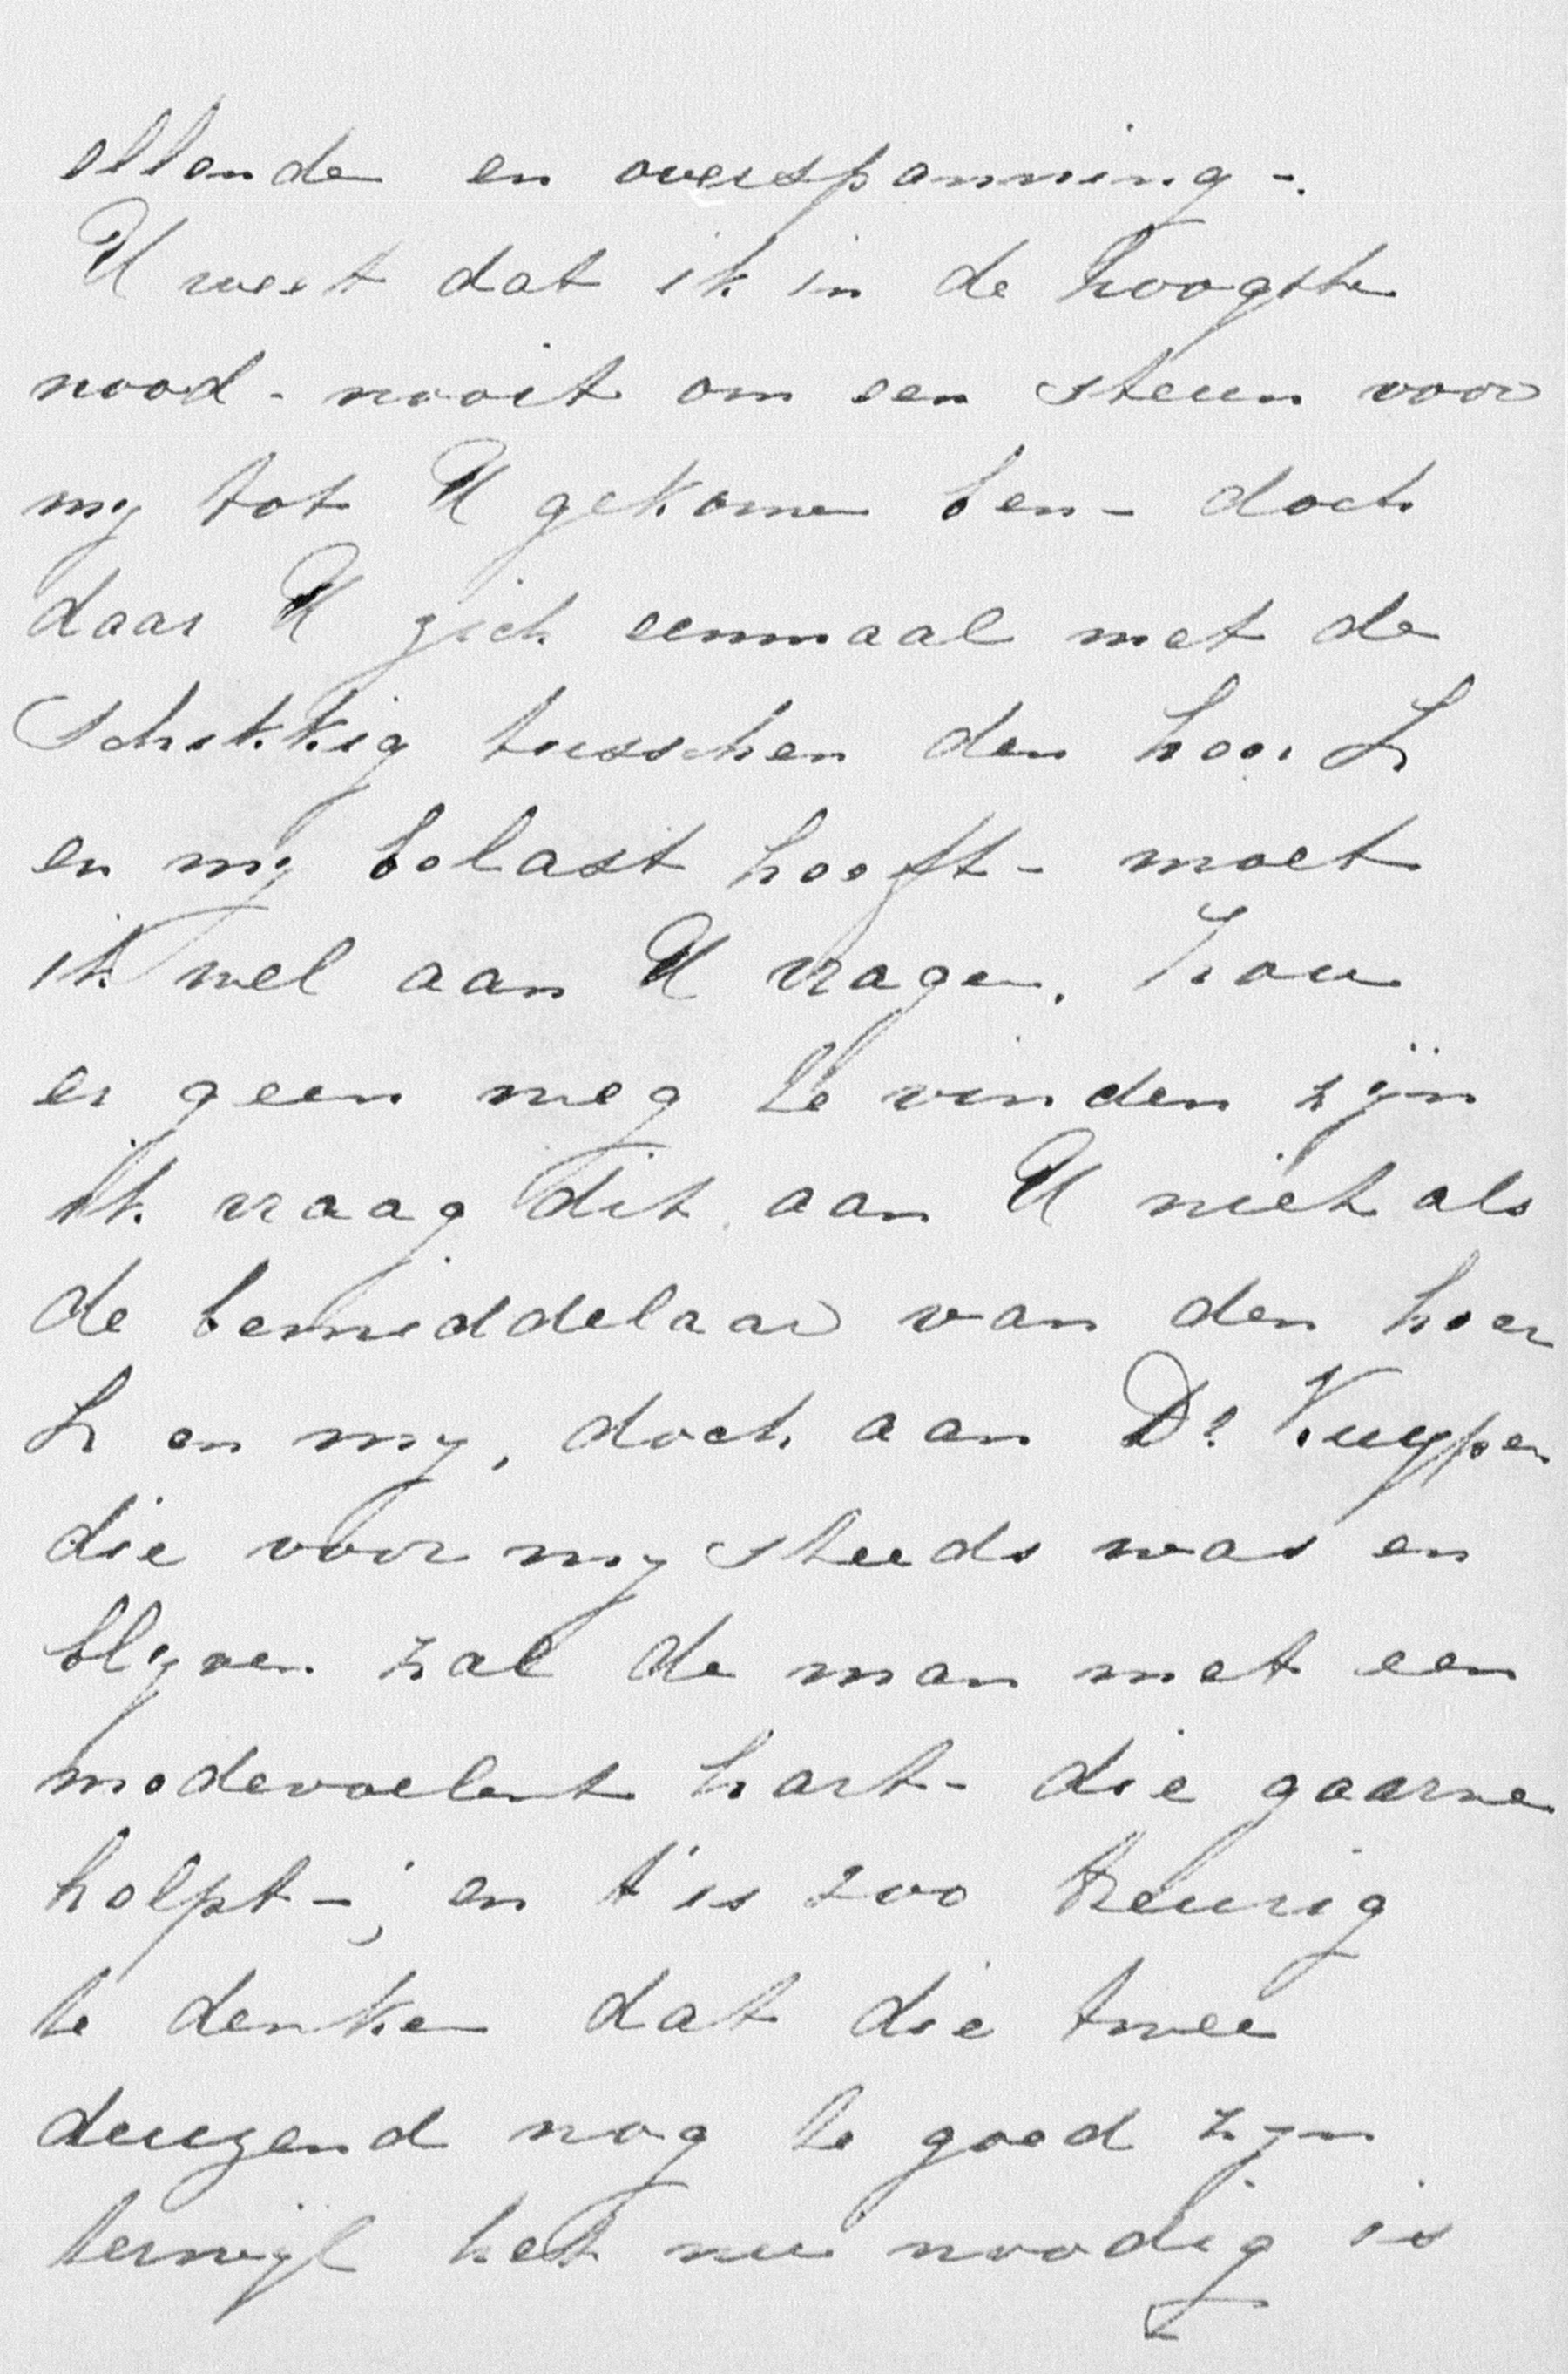 ellende en overspanning -.
U weet dat ik in de hoogste
nood - nooit om een steun voor
my tot U gekomen ben - doch
daar U zich eenmaal met de
Schikkig tusschen den heer L
en my belast heeft - moet
ik wel aan U vragen. Zou
er geen weg te vinden zijn
ik vraag dit aan U niet als
de bemiddelaar van den heer
L en my, doch aan Dr. Kuyper
die voor my steeds was en
blyven zal de man met een
medevoelent hart - die gaarne
helpt -; en t'is zoo treurig
te denken dat die twee
duizend nog te goed zyn
terwijl het nu noodig is